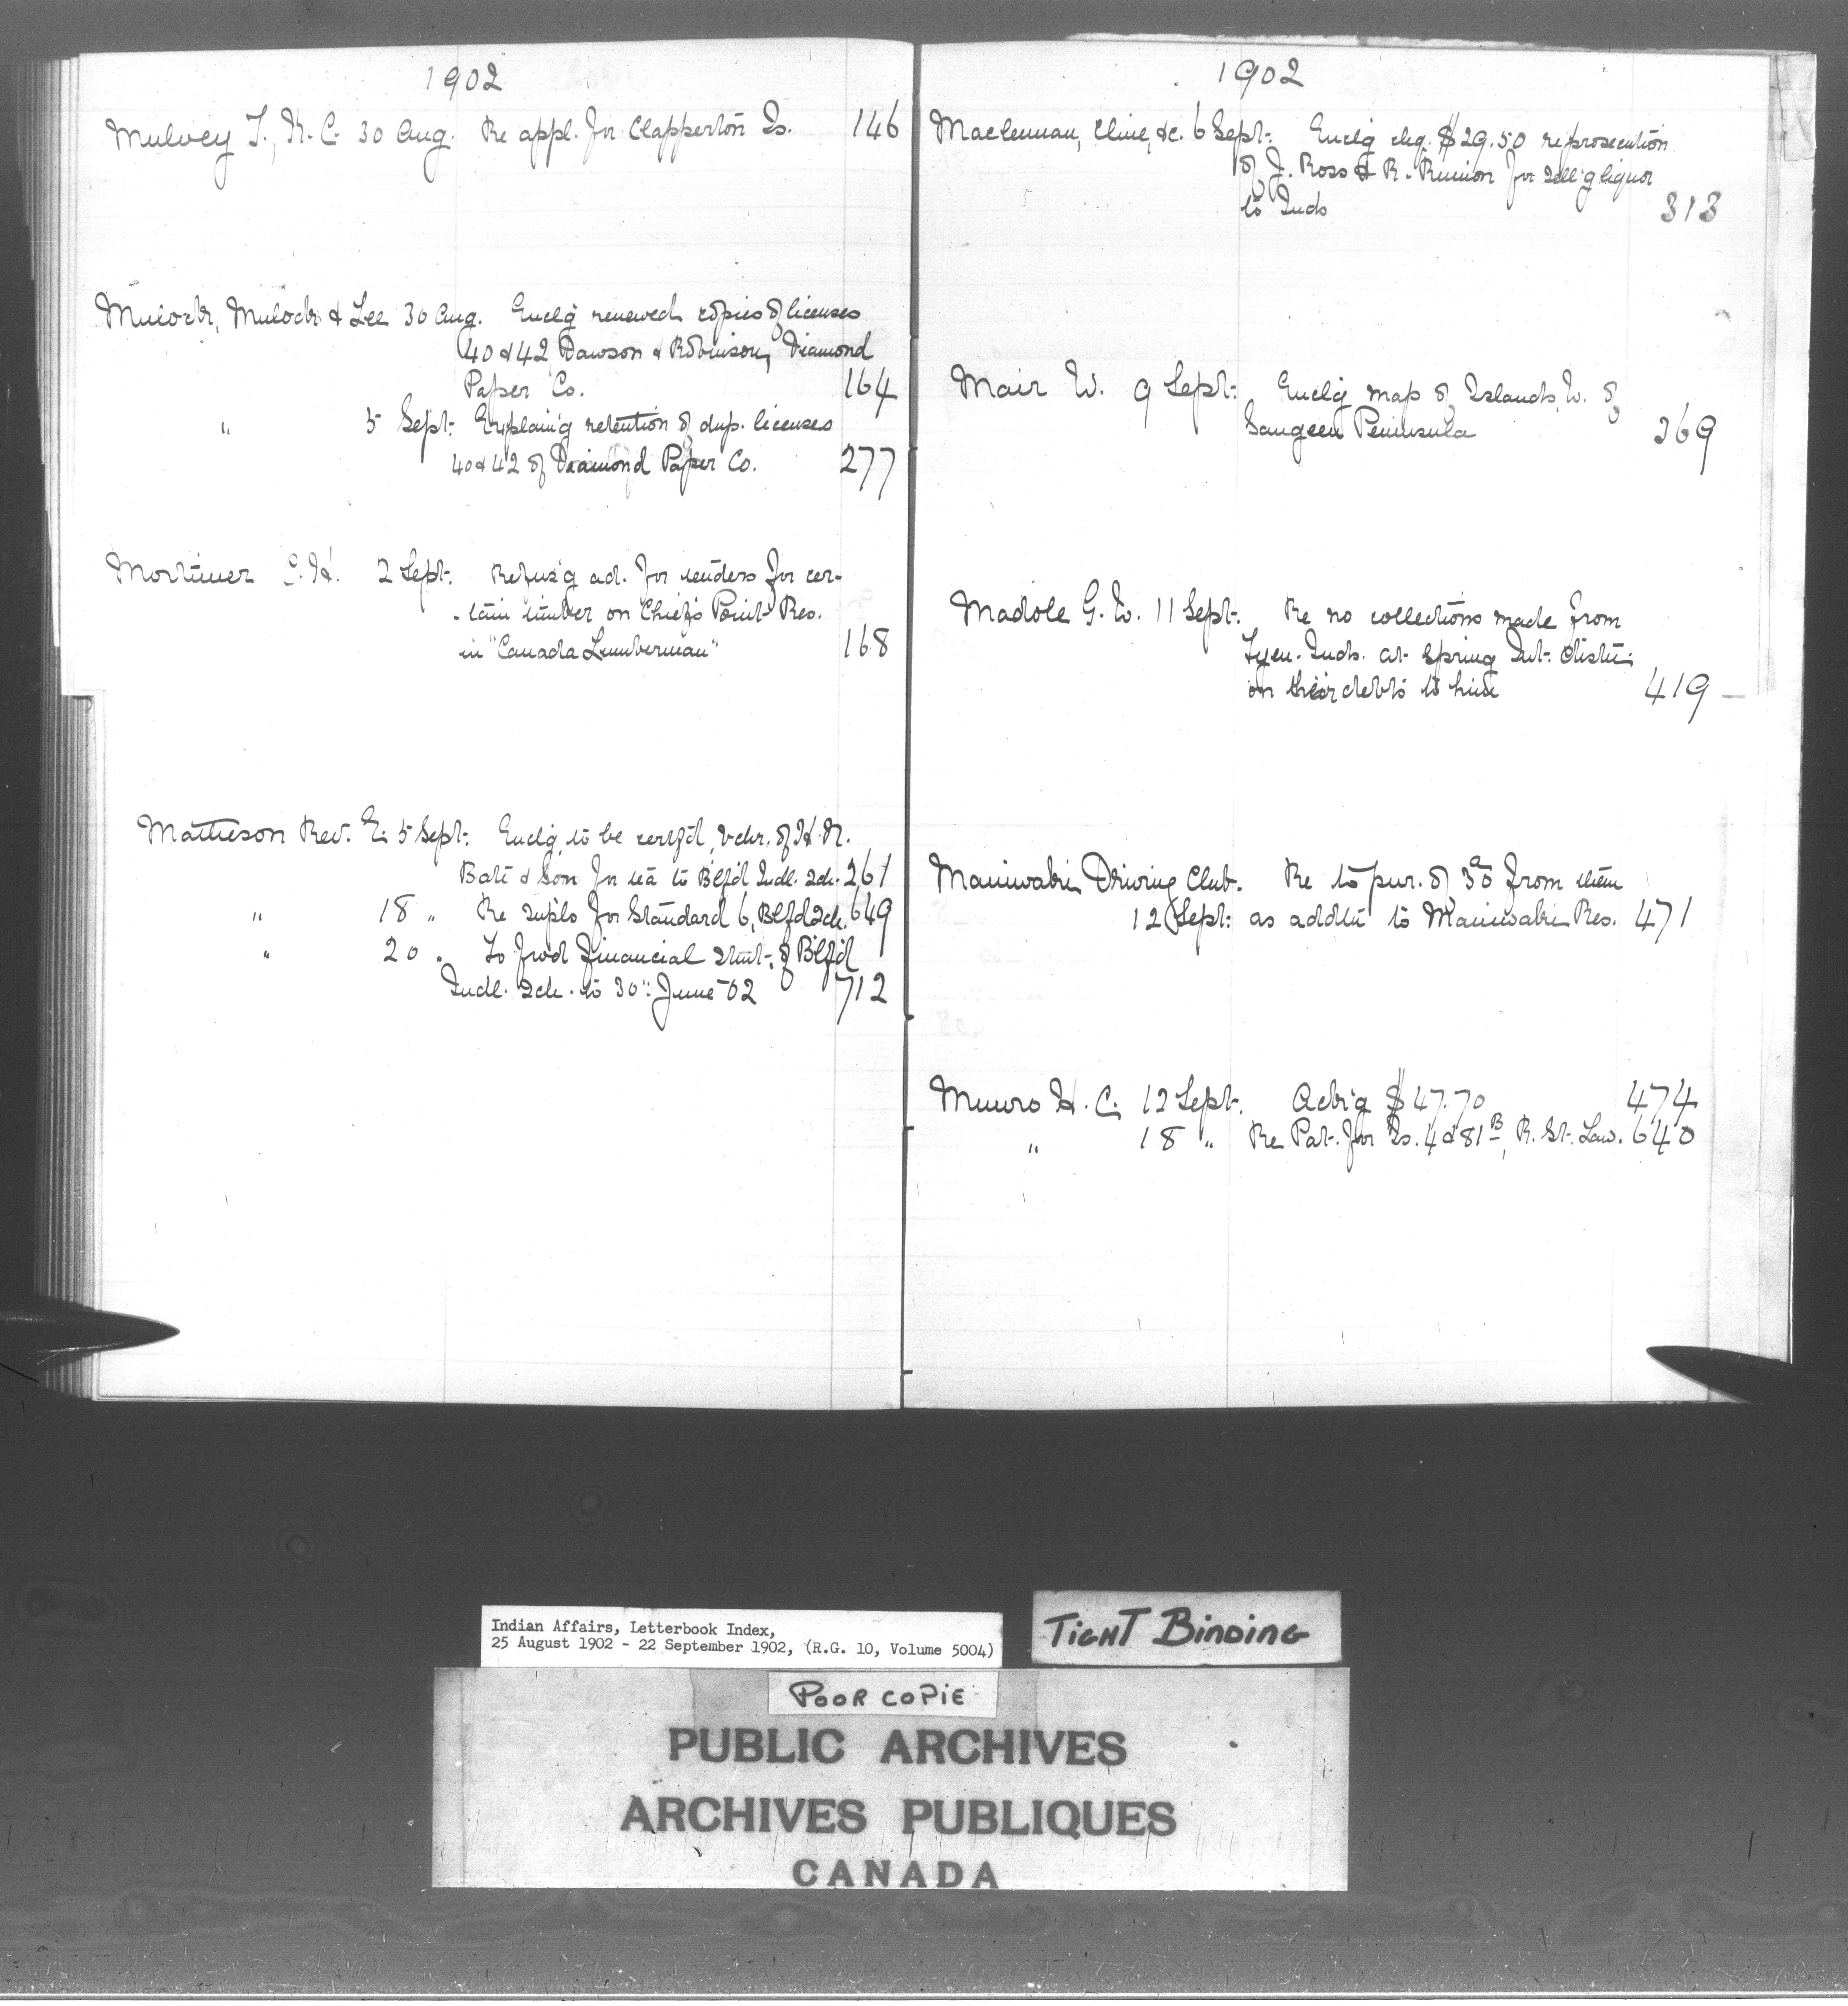 1902
Mulvey T., K.C. 30 Aug. Re appl. for Clapperton Is. 146
Mulock, Mulock & Lee 30 Aug. Enclg renewed copies of licenses
40 & 42 Dawson & Robinson, Diamond
Paper Co. 164
" 5 Sept. Explaing retention of dup. licenses
40 & 42 of Diamond Paper Co. 277
Mortimer C.H. 2 Sept. Refus'g ad. for tenders for cer-
-tain timber on Chief's Point Res.
in "Canada Lumberman" 168
Matheson Rev. E. 5 Sept. Enclg, to be certf'd, vchr. of H.N.
Bate & Son for tea to Btlf'd Indl. Sch. 261
" 18 " Re supls for Standard 6, Btlfd Sch. 649
" 20 " To fwd financial stmt. of Btlf'd
Indl. Sch. to 30" June 02 712
1902
Maclennan, Cline, &c. 6 Sept. Enclg chq. $29.50 re prosecution
of J. Ross & R. Runion for sell'g liquor
to Inds 313
Mair W. 9 Sept. Enclg map of Islands W. of
Saugeen Peninsula 369
Madole G. W. 11 Sept. Re no collections made from
Tyen. Inds. at Spring Int. distn.
on their debts to him 419 —
Maniwaki Driving Club. Re to pur. of 30a from them
12 Sept. as addtn to Maniwaki Res. 471
Munro H. C. 12 Sept. Ackg $47.70 474
" 18 " Re Pat. for Is. 4 & 81B, R. St. Law. 640
Indian Affairs, Letterbook Index,
25 August 1902 - 22 September 1902, (R.G. 10, Volume 5004)
TIGHT BINDING
POOR COPIE
PUBLIC ARCHIVES
ARCHIVES PUBLIQUES
CANADA